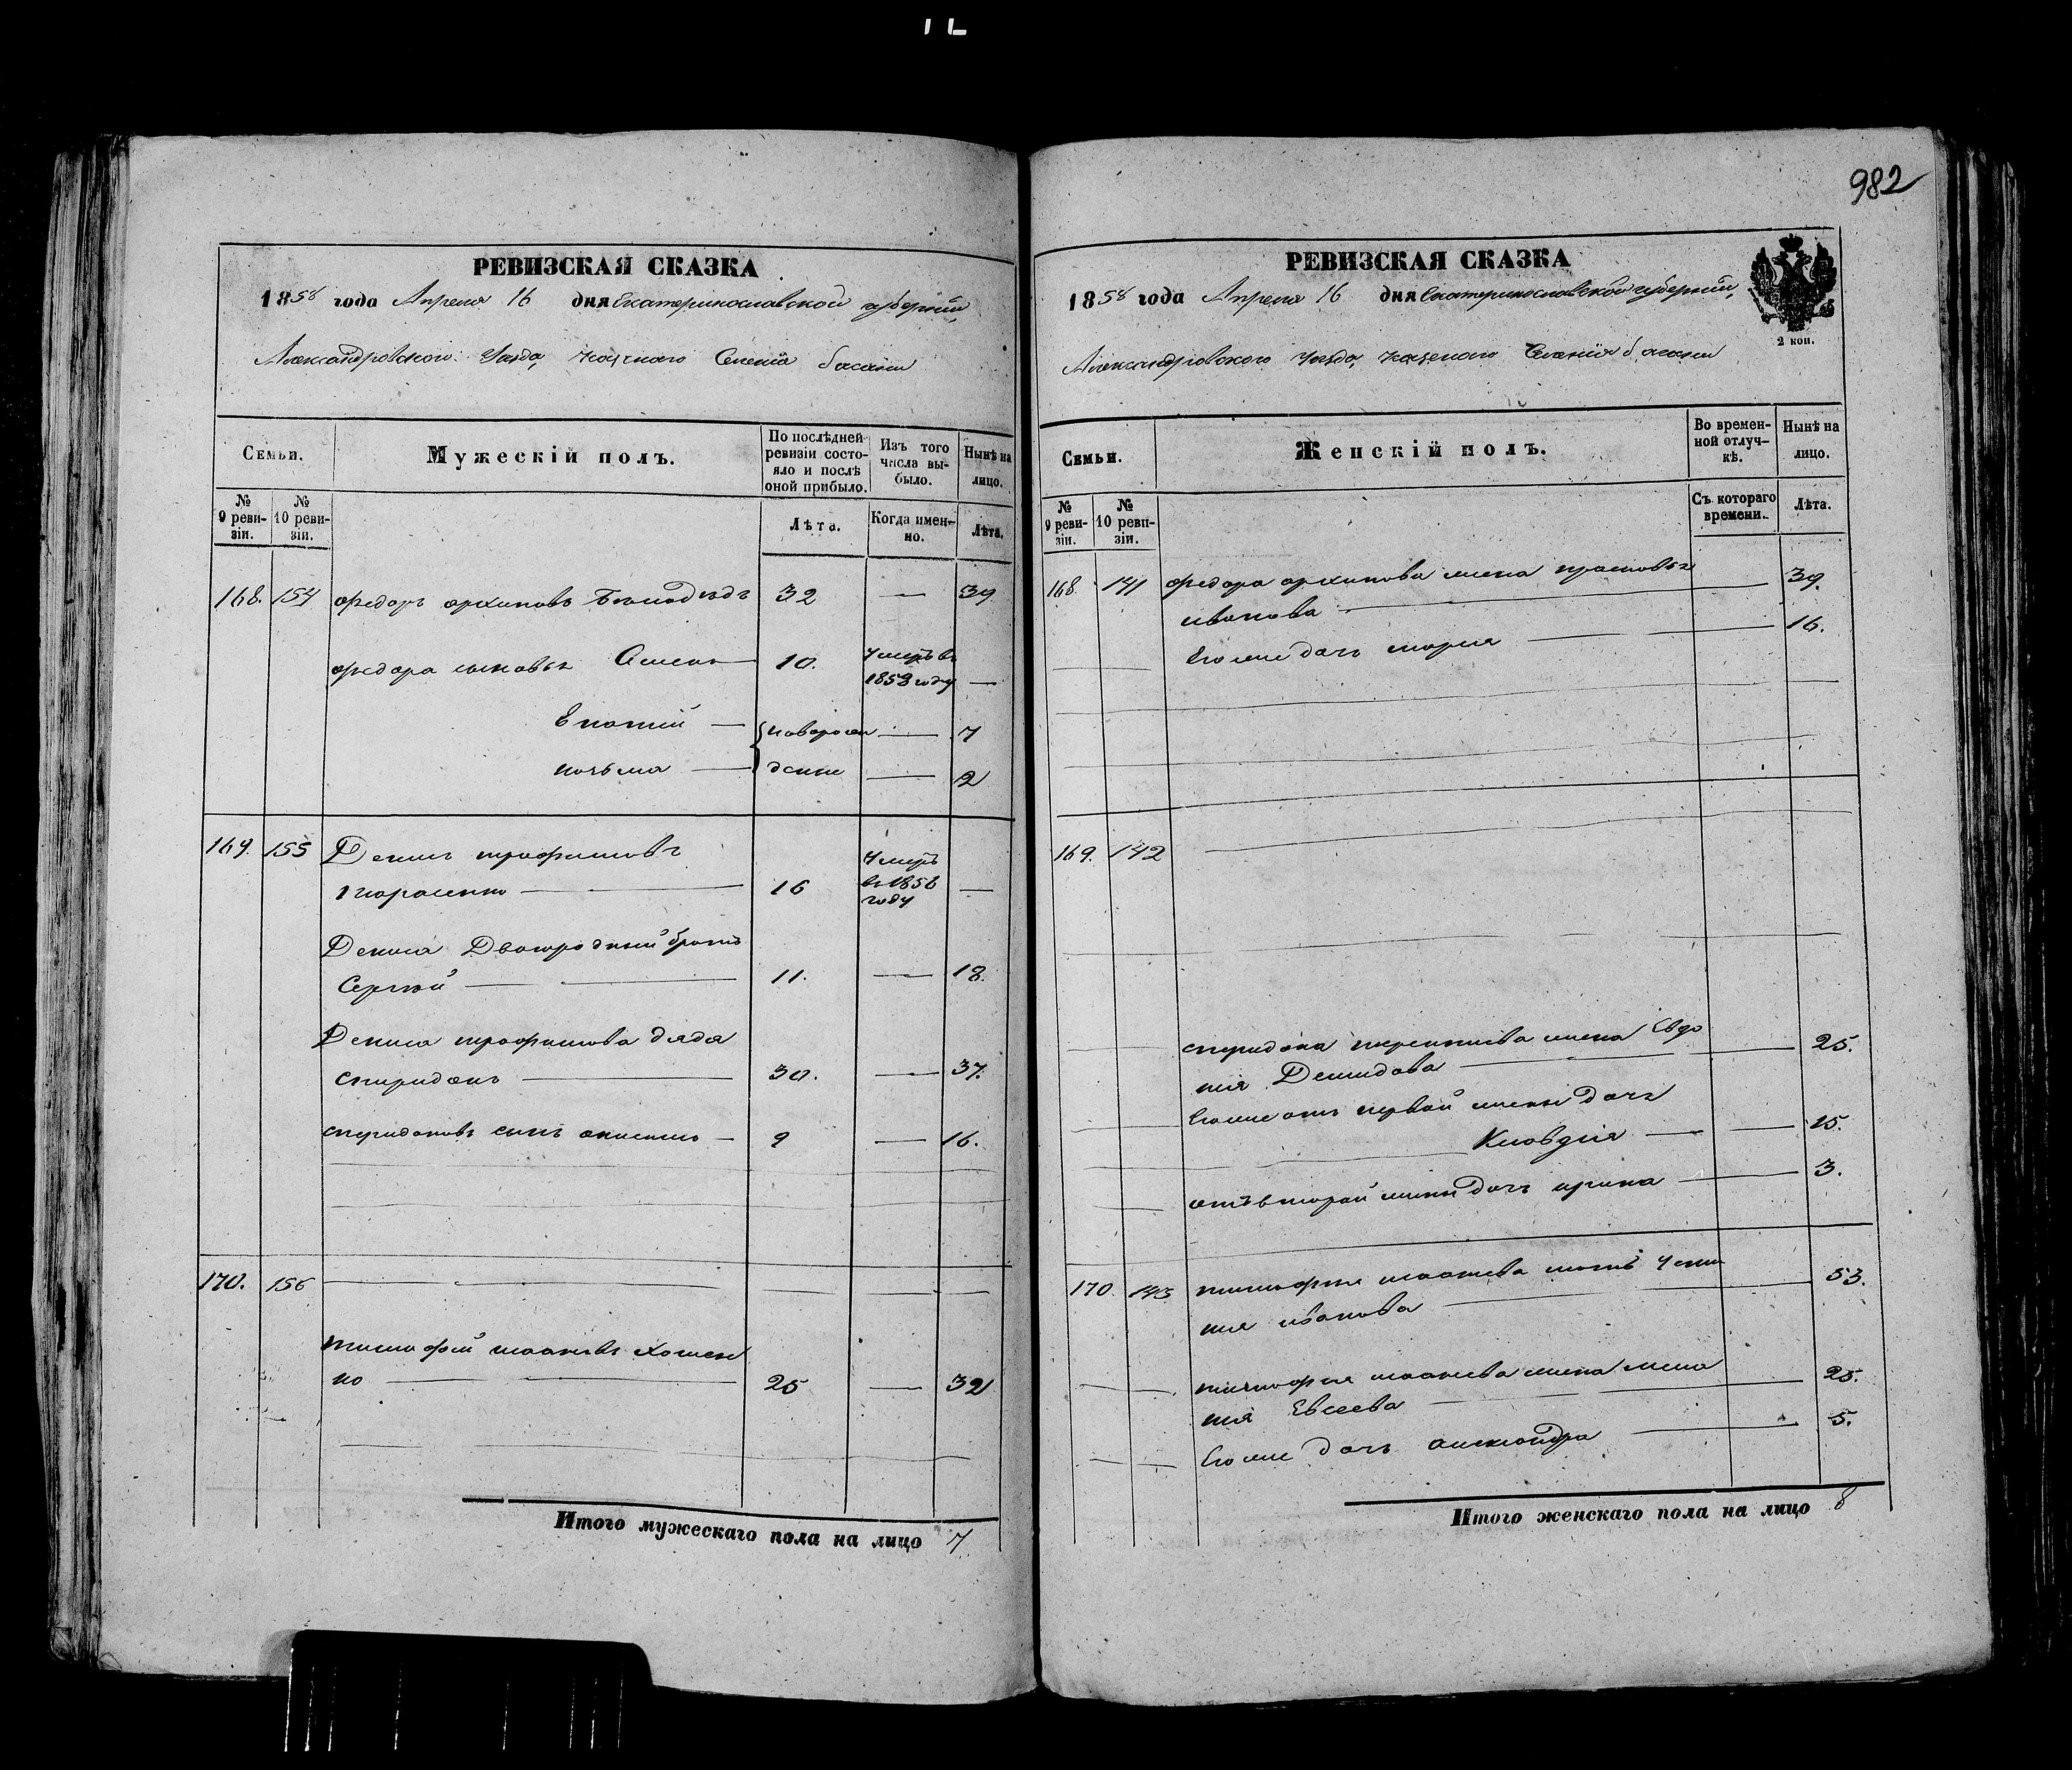 982
РЕВИЗСКАЯ СКАЗКА
1858 года Апреля 16 дня Екатеринославской губернии,
Александровского Уезда, казенного Селенія басани
Семьи.
Мужескій полъ.
По послѣдней ревизіи состояло и послѣ оной прибыло.
Изъ того числа выбыло.
Нынѣ на лицо.
№ 9 ревизіи.
№ 10 ревизіи.
Лѣта.
Когда именно.
Лѣта.
168. 154 федоръ архиповъ 32 — 39
федора сыновья 10. Умеръ в 1853 году —
Ипатій — новорож — 7
козьма — денные — 2
169. 155 Денис трофимовъ
тарасенко — 16 Умеръ в 1858 году —
Дениса Двоюродный братъ
Сергѣй — 11. — 18.
Дениса трофимова дядя
спиридонъ — 30. — 37.
спиридоновъ сынъ анисимъ — 9 — 16.
170. 156 —
тимофей 
ко — 25 — 32
Итого мужескаго пола на лицо 7
РЕВИЗСКАЯ СКАЗКА
1858 года Апреля 16 дня Екатеринославской губернии,
Александровского Уезда, казенного Селенія басани
2 коп.
Семьи.
Женскій полъ.
Во временной отлучкѣ.
Нынѣ на лицо.
№ 9 ревизіи.
№ 10 ревизіи.
Съ котораго времени.
Лѣта.
168. 141 федора архипова жена прасковья
иванова — 39.
Его же дочь мария — 16.
169. 142 —
спиридона жена Евдо
кия Демидова — 25.
Его же отъ первой жены дочь
Клавдия — 15.
отъ второй жены дочь ирина — 3.
170. 143 тимофея мать Усти
ния иванова — 53.
тимофея жена мела
ния Евсеева — 25.
Его же дочь александра — 5.
Итого женскаго пола на лицо 8